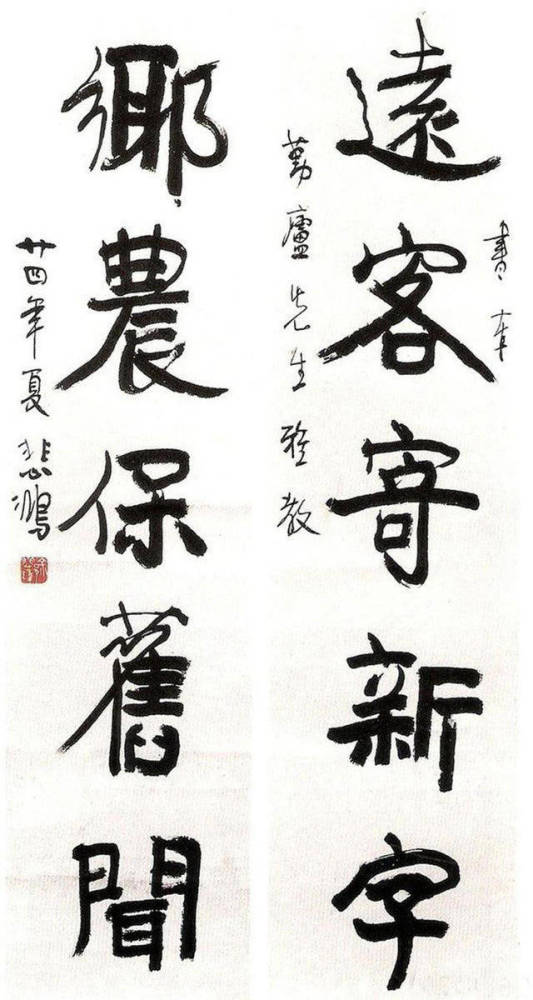 遠客寄新字
書奉
勤廬先生雅教
鄉農保舊聞
廿四年夏悲鴻